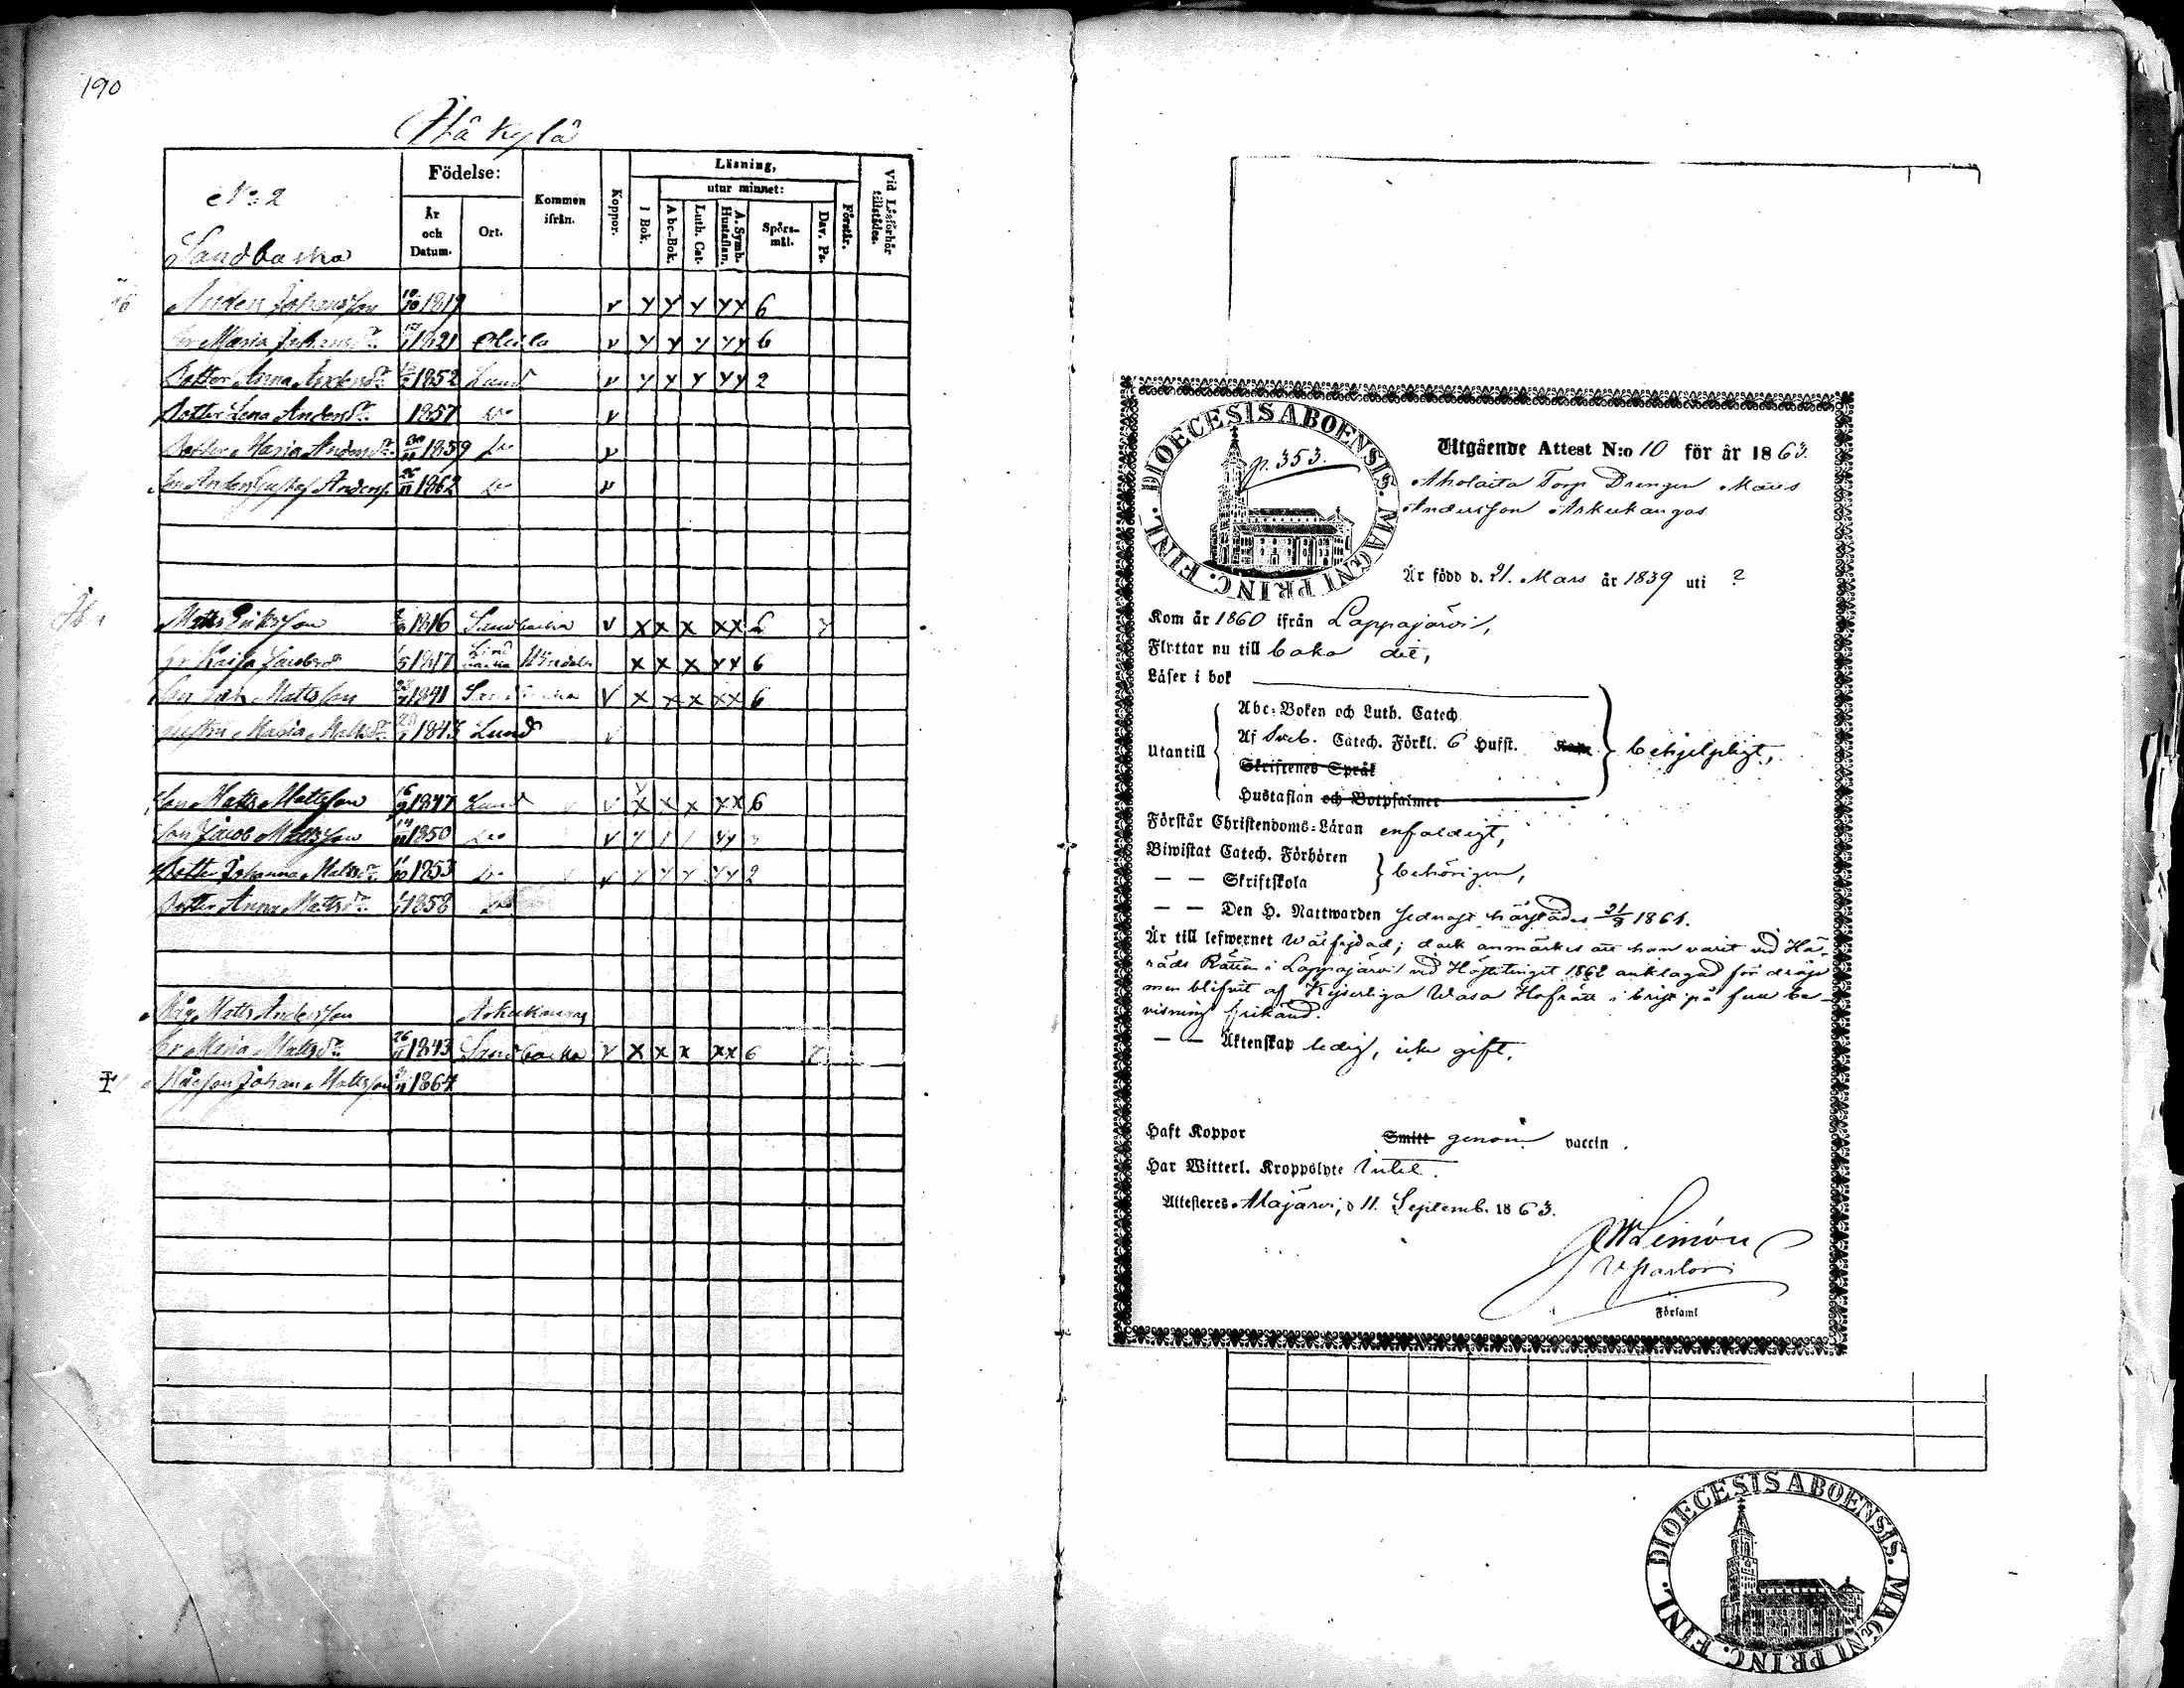 190
Itä Kylä
No 2
Sandbacka
Födelse:
År och Datum.
Ort.
Kommen ifrån.
Koppor.
Läsning,
utur minnet:
I Bok.
Abc-Bok.
Luth. Cat.
A. Symb. Hustaflan.
Spörs-mål.
Dav. Ps.
Förstår.
Vid Läsförhör tillstädes.
Anders Johansson 1817 v y y y yy 6
hr Maria Johansdr 1821 v y y y yy 6
Dotter Anna Andersdr 1852 Lund v y y y yy 2
Dotter Lena Andersdr 1857 v
Dotter Maria Andersdr 1859 v
Son Anders Gustaf Anderss. 1862 v
Matts Eriksson 1816 Sandbacka v x x x xx
hr Kaisa Jacobsdr 1817 x x x yy 6
Son Matts Mattsson 1847 Lund v x x x yx 6
Son Jacob Mattsson 1850 v
Dotter Johanna Mattsdr 1853 v y y y yy 2
Dotter Anna Mattsdr 1858
Måg Matts Andersson Askukangas
hr Maria Mattsdr 26/11 1843 Sandbacka v x x x xx 6
Mågson Johan Mattsson 1864
DIOECESIS ABOENSIS. MAGNI PRINC. FINL.
p. 353.
Utgående Attest N:o 10 för år 1863.
Aholaita Torp Drengen Matts
Andersson Askukangas
Är född d. 21. Mars år 1839 uti ?
Kom år 1860 ifrån Lappajärvi,
Flyttar nu till baka dit,
Läser i bok
Abc-Boken och Luth. Catech.
Utantill
Af Sveb. Catech. Förkl. 6 Hufst.
behjelpligt,
Skriftenes Språk
Hustaflan och Botpsalmer
Förstår Christendoms-Läran enfaldigt,
Biwistat Catech. Förhören
— — Skriftskola
behörigen,
— — Den H. Nattwarden sednast härstädes 21/9 1861.
Är till lefwernet wälfrejdad; dock anmärkes att han varit vid Hä-
rads Rätten i Lappajärvi vid Hösttinget 1862 anklagad för dråp
men blifvit af Kejserliga Wasa Hofrätt i brist på full be-
visning frikänd.
— — Äktenskap ledig, icke gift,
Haft Koppor Smitt genom vaccin.
Har Witterl. Kroppslyte Intet.
Attesteres. Alajärvi, d 11. Septemb. 1863.
Församl
DIOECESIS ABOENSIS. MAGNI PRINC. FINL.